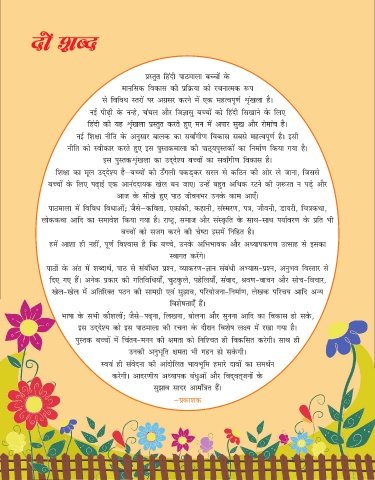 दो शब्द
प्रस्तुत हिंदी पाठमाला बच्चों के
मानसिक विकास की प्रक्रिया को रचनात्मक रूप
से विविध स्तरों पर अग्रसर करने में एक महत्वपूर्ण शृंखला है।
नई पीढ़ी के नन्हे, चंचल और जिज्ञासु बच्चों को हिंदी सिखाने के लिए
हिंदी की यह शृंखला प्रस्तुत करते हुए मन में अपार सुख और रोमांच है।
नई शिक्षा नीति के अनुसार बालक का सर्वांगीण विकास सबसे महत्वपूर्ण है। इसी
नीति को स्वीकार करते हुए इस पुस्तकमाला की पाठ्यपुस्तकों का निर्माण किया गया है।
इस पुस्तकशृंखला का उद्देश्य बच्चों का सर्वांगीण विकास है।
शिक्षा का मूल उद्देश्य है–बच्चों को उँगली पकड़कर सरल से कठिन की ओर ले जाना, जिससे
बच्चों के लिए पढ़ाई एक आनंददायक खेल बन जाए। उन्हें बहुत अधिक रटने की ज़रूरत न पड़े और
आज के सीखे हुए पाठ जीवनभर उनके काम आएँ।
पाठमाला में विविध विधाओं; जैसे–कविता, एकांकी, कहानी, संस्मरण, पत्र, जीवनी, डायरी, चित्रकथा,
लोककथा आदि का समावेश किया गया है। राष्ट्र, समाज और संस्कृति के साथ-साथ पर्यावरण के प्रति भी
बच्चों को सजग करने की चेष्टा इसमें निहित है।
हमें आशा ही नहीं, पूर्ण विश्वास है कि बच्चे, उनके अभिभावक और अध्यापकगण उत्साह से इसका
स्वागत करेंगे।
पाठों के अंत में शब्दार्थ, पाठ से संबंधित प्रश्न, व्याकरण-ज्ञान संबंधी अभ्यास-प्रश्न, अनुभव विस्तार से
दिए गए हैं। अनेक प्रकार की गतिविधियाँ, चुटकुले, पहेलियाँ, संवाद, श्रवण-वाचन और सोच-विचार,
खेल-खेल में अतिरिक्त पठन की सामग्री एवं सुझाव, परियोजना-निर्माण, लेखक परिचय आदि अन्य
विशेषताएँ हैं।
भाषा के सभी कौशलों; जैसे–पढ़ना, लिखना, बोलना और सुनना आदि का विकास हो सके,
इस उद्देश्य को इस पाठमाला की रचना के दौरान विशेष लक्ष्य में रखा गया है।
पुस्तक बच्चों में चिंतन-मनन की क्षमता को निश्चित ही विकसित करेगी। साथ ही
उनकी अनुभूति क्षमता भी गहन हो सकेगी।
स्वयं ही संवेदना की आंदोलित भावभूमि हमारे दावों का समर्थन
करेगी। आदरणीय अध्यापक बंधुओं और विद्वत्जनों के
सुझाव सादर आमंत्रित हैं।
–प्रकाशक